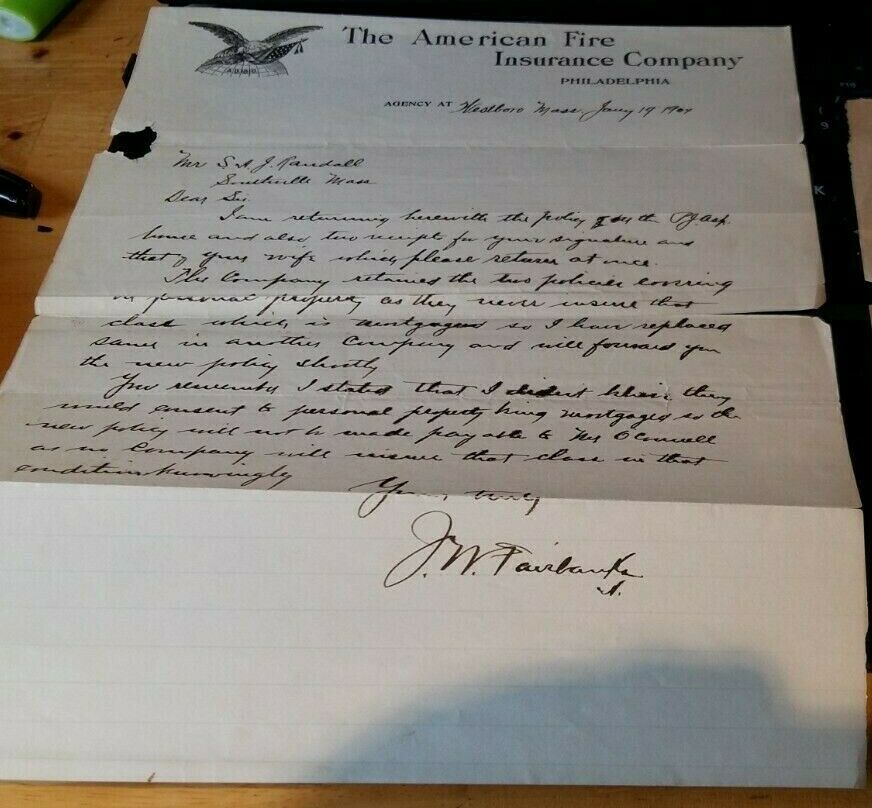 The American Fire
Insurance Company
PHILADELPHIA
AGENCY AT Westboro Mass, Jany 19 190
Mr S. A. J. Randall
Southville Mass
Dear Sir
I am returning herewith the policy on the
house and also two receipts for your signature and
that of your wife which please return at once.
The Company retained the two policies covering
on personal property as they never insure that
class which is mortgaged so I have replaced
same in another Company and will forward you
the new policy shortly
You remember I stated that I didn't believe they
would consent to personal property being mortgaged so the
new policy will not be made payable to Mr O'Connell
as no Company will insure that class in that
condition knowingly
Yours truly
J. W. Fairbanks
A.
K